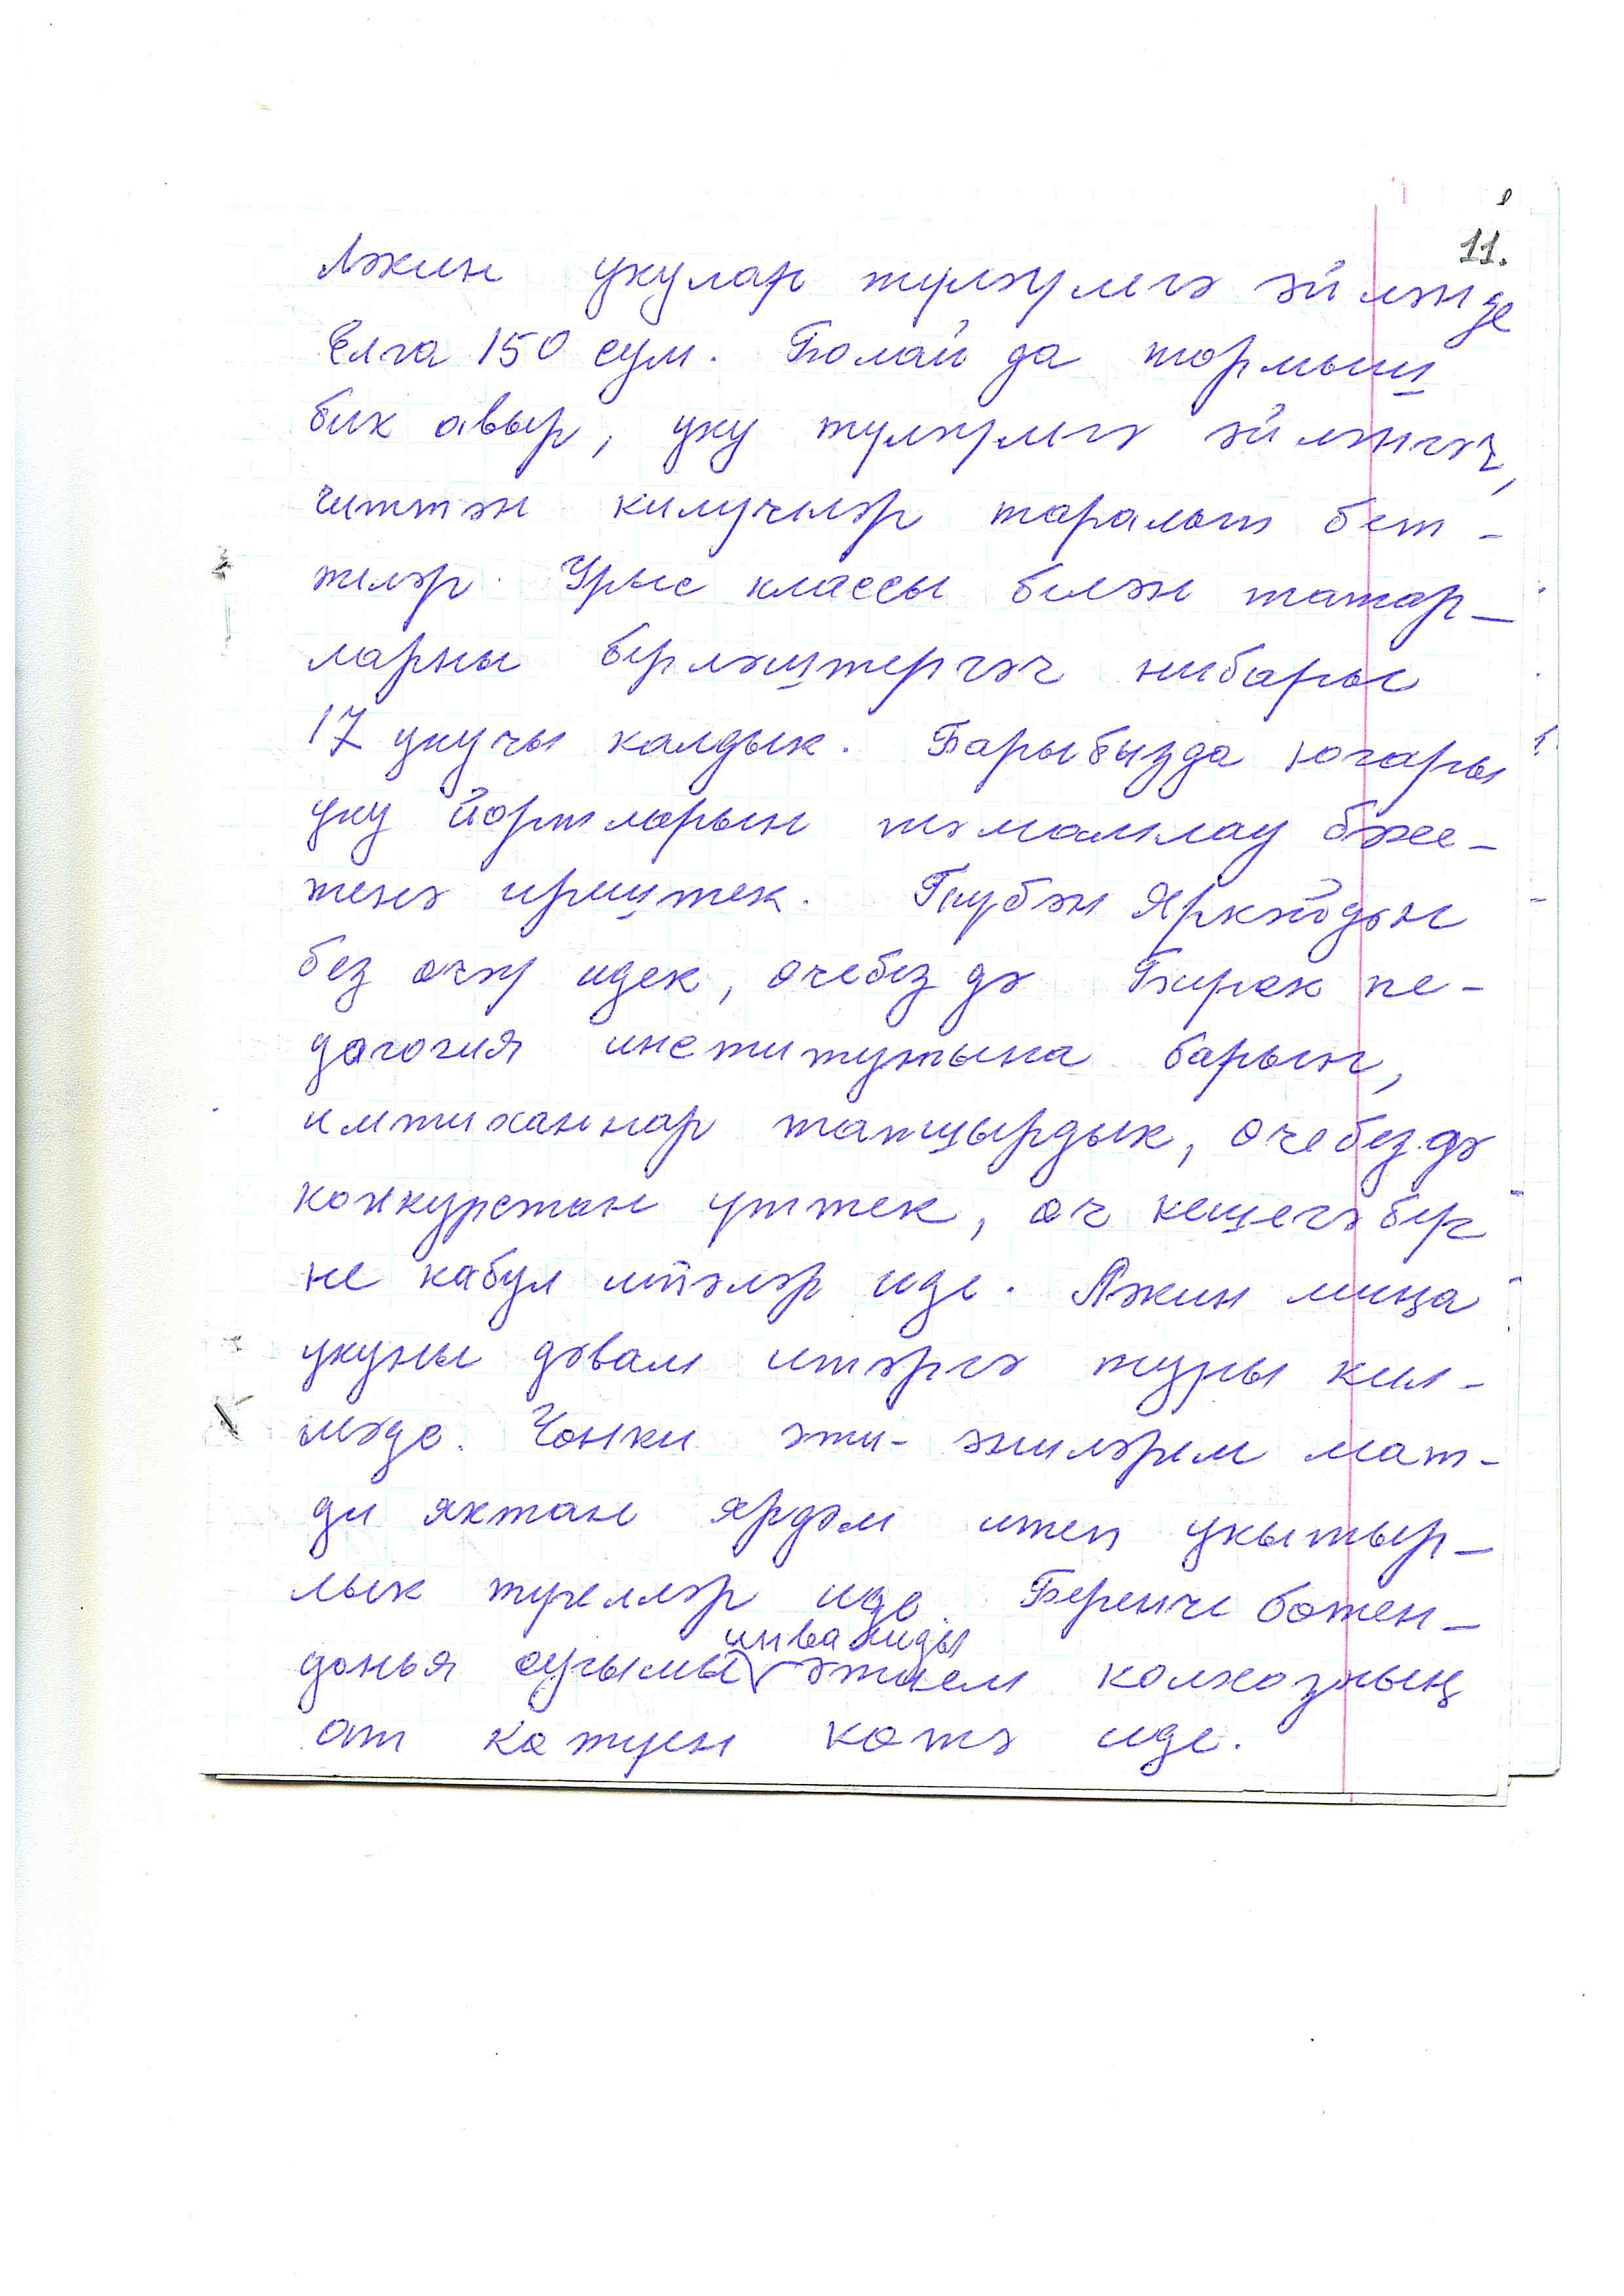 11.
Ләкин укулар түләүлегә әйләнде
Елга 150 сум. Болай да тормыш
бик авыр, уку түләүлегә әйләнгәч,
читтән килүчеләр таралып бет-
теләр. Урыс классы белән татар-
ларны берләштергәч нибары
17 укучы калдык. Барыбызда югары
уку йортларын тәмамлау бәхе-
тенә ирештек. Түбән Яркәйдән
без өчәү идек, өчебез дә Бирск пе-
дагогия институтына барып,
имтиханнар тапшырдык, өчебез дә
конкурстан үттек, өч кешегә бер
не кабул итәләр иде. Ләкин миңа
укуны дәвам итәргә туры кил-
мәде. Чөнки әти-әниләрем мат-
ди яктан ярдәм итеп укытыр-
лык түгелләр иде. Беренче бөтен-
дөнья сугышы инвалиды әтием колхозның
ат көтүен көтә иде.